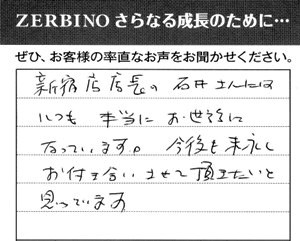 ZERBINO さらなる成長のために…
ぜひ、お客様の率直なお声をお聞かせください。
新宿店店長の 石井さんには
いつも 本当に お世話に
なっています。 今後も末永く
お付き合いさせて頂きたいと
思っています